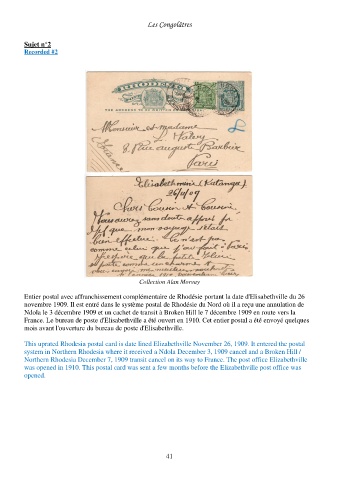 Les Congolâtres
Sujet n°2
Recorded #2
RHODESIA
Monsieur et madame
Valery
8. Rue Auguste Barbier
Paris
France
Elisabethville (Katanga)
26/11/09
Chers Cousin et Cousine,
Vous avez sans doute appris par
que mon voyage s'était
bien effectué. Ce n'est pas
comme celui que
la petite
Collection Alan Morvay
Entier postal avec affranchissement complémentaire de Rhodésie portant la date d'Elisabethville du 26
novembre 1909. Il est entré dans le système postal de Rhodésie du Nord où il a reçu une annulation de
Ndola le 3 décembre 1909 et un cachet de transit à Broken Hill le 7 décembre 1909 en route vers la
France. Le bureau de poste d'Elisabethville a été ouvert en 1910. Cet entier postal a été envoyé quelques
mois avant l'ouverture du bureau de poste d'Elisabethville.
This uprated Rhodesia postal card is date lined Elizabethville November 26, 1909. It entered the postal
system in Northern Rhodesia where it received a Ndola December 3, 1909 cancel and a Broken Hill /
Northern Rhodesia December 7, 1909 transit cancel on its way to France. The post office Elizabethville
was opened in 1910. This postal card was sent a few months before the Elizabethville post office was
opened.
41